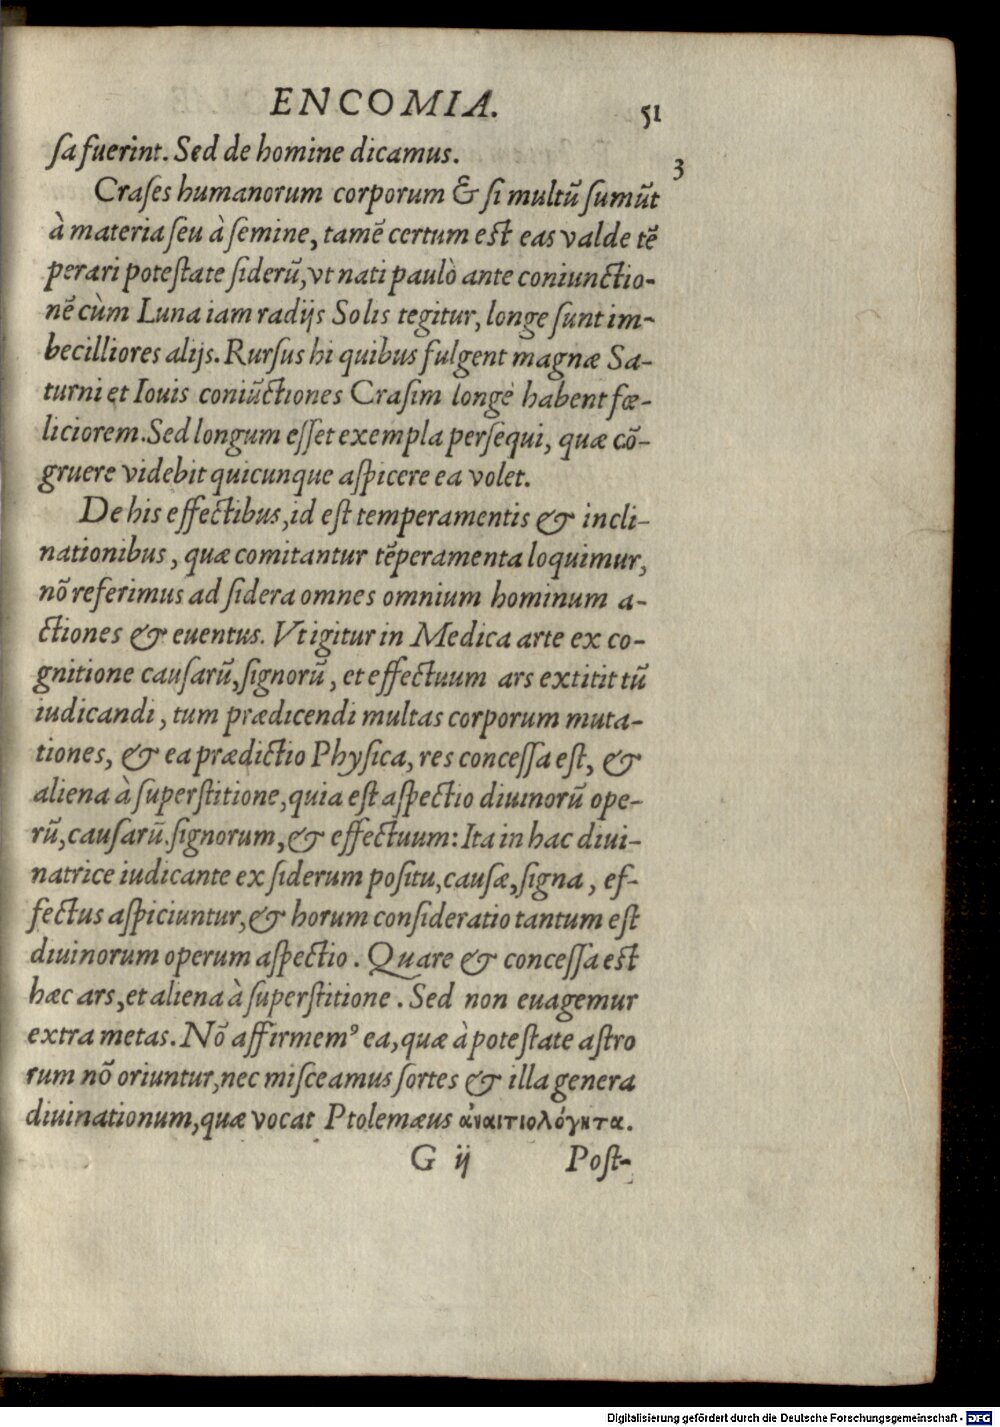 ENCOMIA. 51
sa fuerint. Sed de homine dicamus.
3
Crases humanorum corporum & si multũ sumũt
à materia seu à semine, tamẽ certum est eas valde tẽ
perari potestate siderũ, vt nati paulò ante coniunctio-
nẽ cùm Luna iam radijs Solis tegitur, longe sunt im-
becilliores alijs. Rursus hi quibus fulgent magnæ Sa-
turni et Iouis coniũctiones Crasim longè habent fœ-
liciorem. Sed longum esset exempla persequi, quæ cõ-
gruere videbit quicunque aspicere ea volet.
De his effectibus, id est temperamentis & incli-
nationibus, quæ comitantur tẽperamenta loquimur,
nõ referimus ad sidera omnes omnium hominum a-
ctiones & euentus. Vt igitur in Medica arte ex co-
gnitione causarũ, signorũ, et effectuum ars extitit tũ
iudicandi, tum prædicendi multas corporum muta-
tiones, & ea prædictio Physica, res concessa est, &
aliena à superstitione, quia est aspectio diuinorũ ope-
rũ, causarũ. signorum, & effectuum: Ita in hac diui-
natrice iudicante ex siderum positu, causæ, signa, ef-
fectus aspiciuntur, & horum consideratio tantum est
diuinorum operum aspectio. Quare & concessa est
hæc ars, et aliena à superstitione. Sed non euagemur
extra metas. Nõ affirmemꝰ ea, quæ à potestate astro
rum nõ oriuntur, nec misceamus sortes & illa genera
diuinationum, quæ vocat Ptolemæus ἀναιτιολόγητα.
G ij Post-
Digitalisierung gefördert durch die Deutsche Forschungsgemeinschaft - DFG